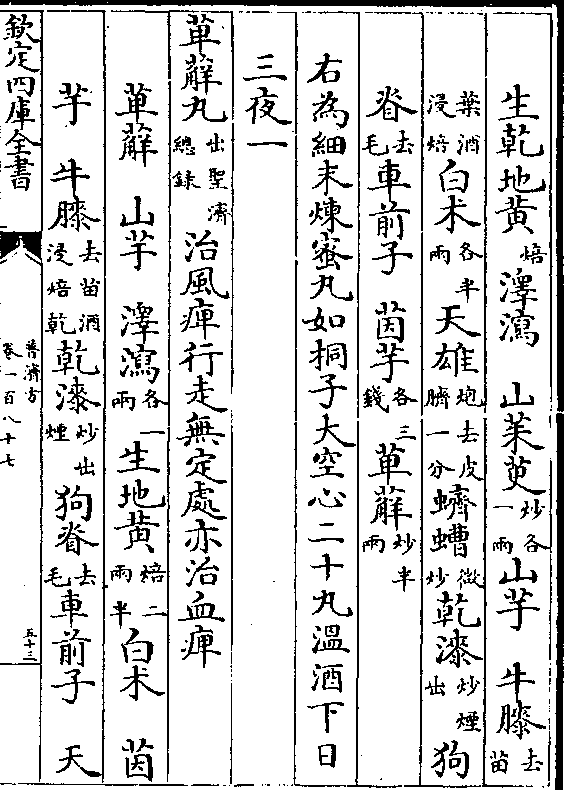 生乾地黄焙澤瀉 山茱萸炒各一兩山芋 牛膝去苗
葉酒浸焙白术各半兩天雄炮去皮臍一分蠐螬微炒乾漆炒煙出狗
脊去毛車前子 茵芋各三錢萆薢炒半兩
右為細末煉蜜丸如桐子大空心二十丸溫酒下日
三夜一
萆薢丸出聖濟總錄治風痺行走無定處亦治血痺
萆薢 山芋 澤瀉各一兩生地黄焙二兩半白术 茵
芋 牛膝去苗酒浸焙乾乾漆炒出煙狗脊去毛車前子 天
欽定四庫全書
普濟方
卷一百八十七
五十三